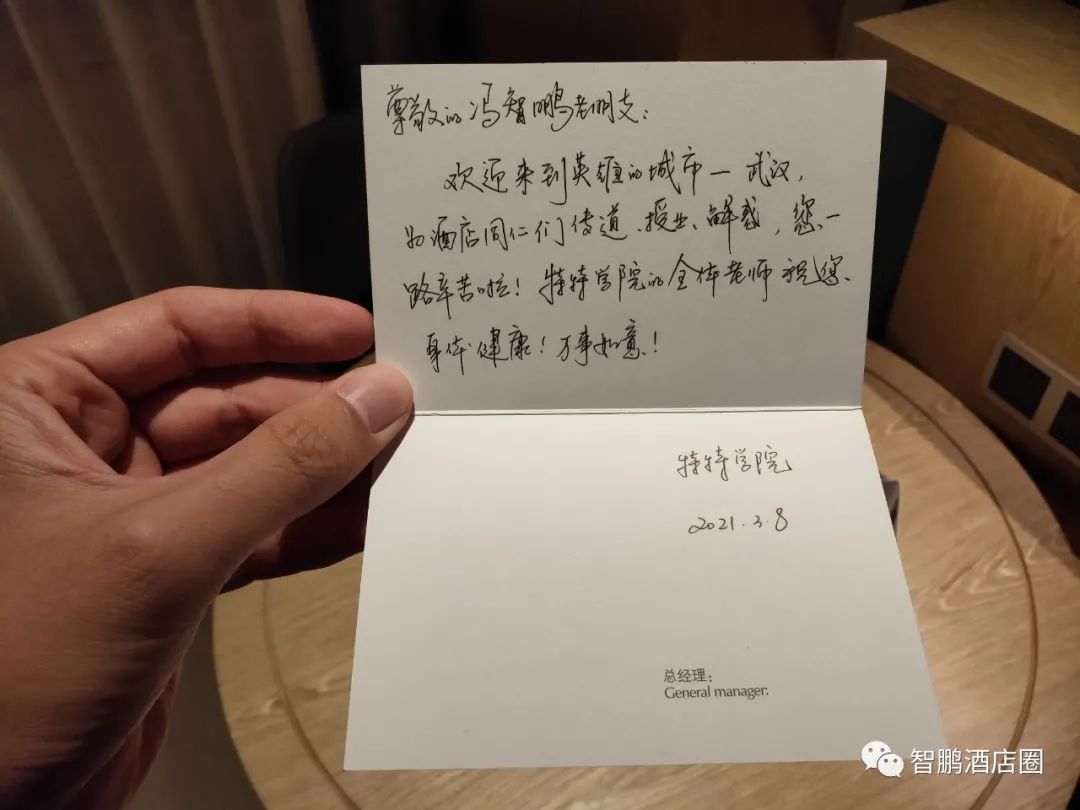 尊敬的冯智鹏老朋友：
欢迎来到英雄的城市一武汉，
为酒店同仁们传道、授业、解惑，您一
路辛苦啦！特特学院的全体老师祝您、
身体健康！万事如意！
特特学院
2021.3.8
总经理：
General manager:
智鹏酒店圈